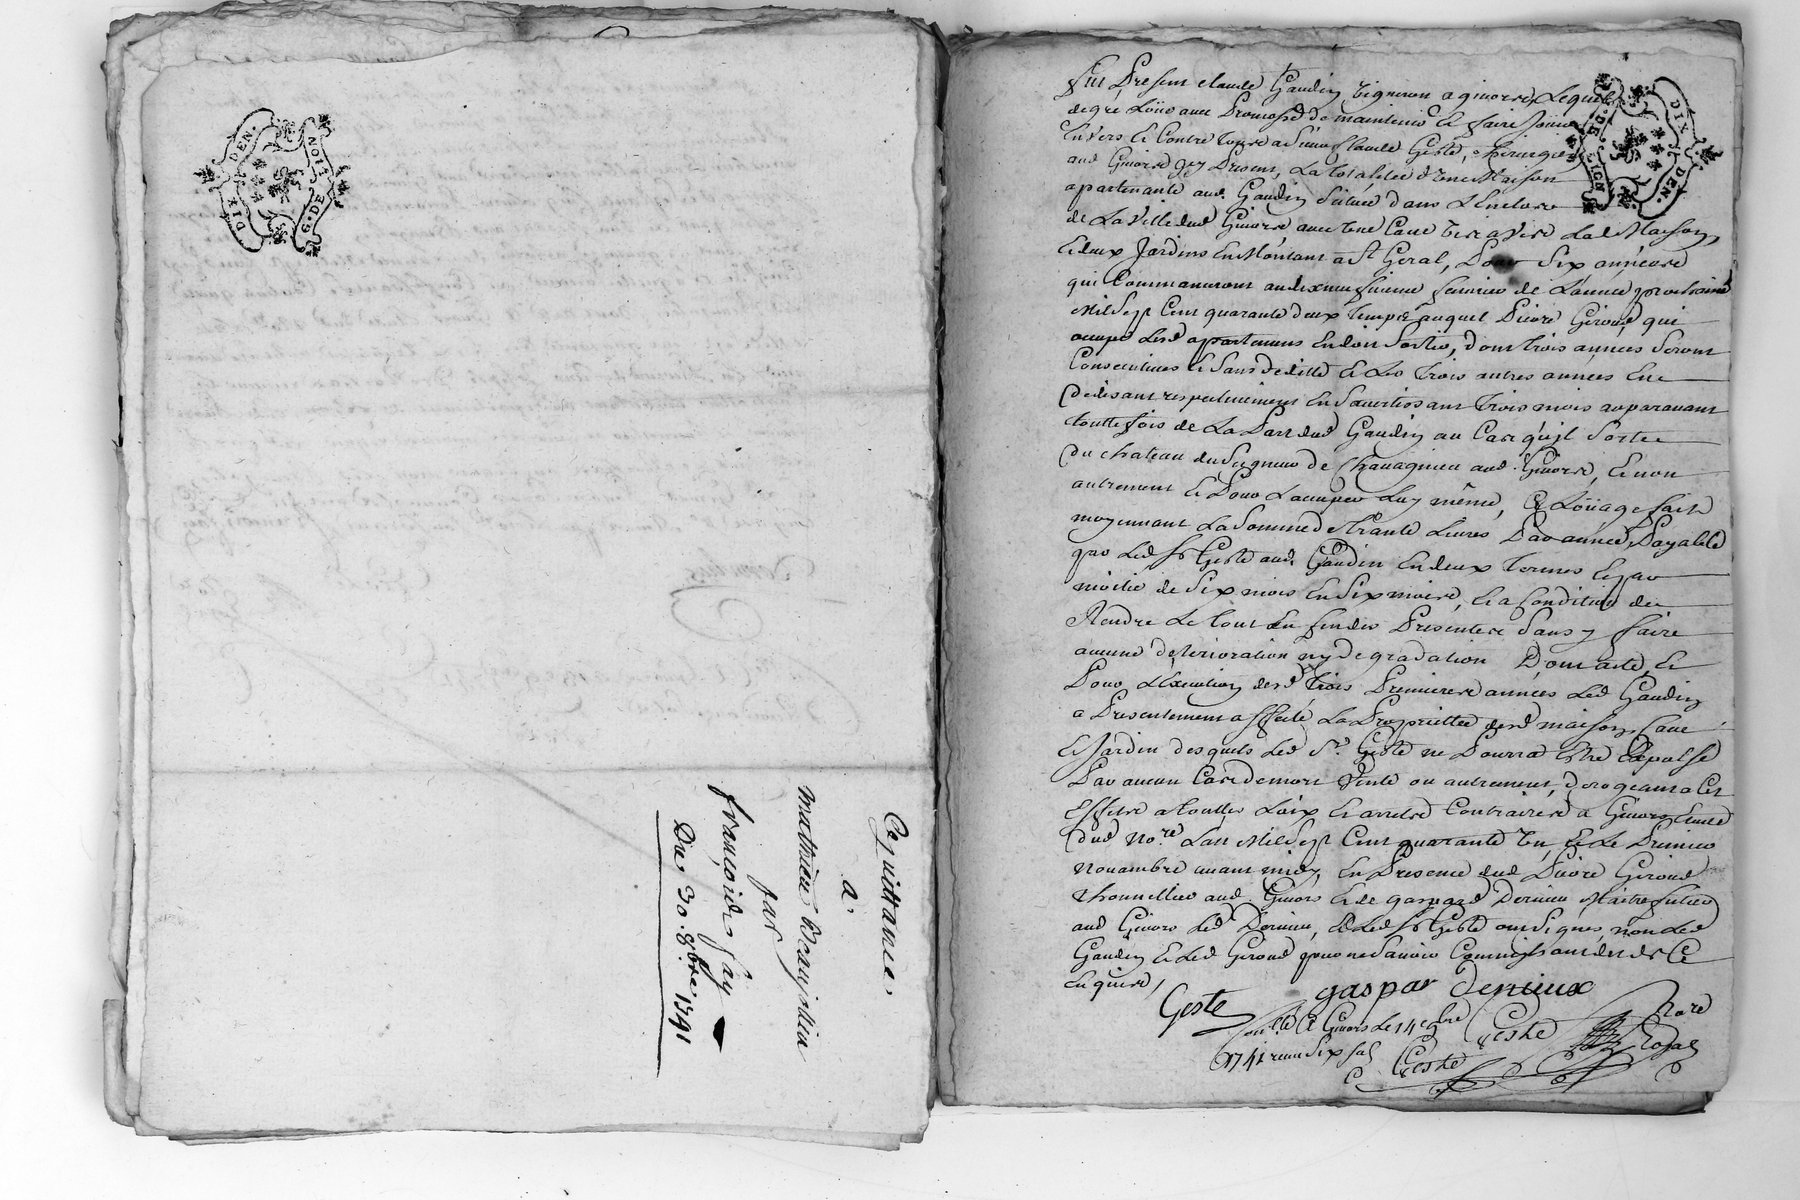 DIX DEN.
G. DE LION
Acquittance
a
mathieu Beaujollin
par
françoise fay
Du 30. 9bre 1741
DIX DEN.
G. DE LION
fut Present Claude Gaudin vigneron a givors, Lequel
de gré Loüe avec Promesse de maintenir et faire Joüir
Envers et Contre tous a Sieur Claude Geste, chirurgien
aud Givors icy Present, La totalité d'une Maison
apartenante aud. Gaudin Scituée dans L'Enclos
de La Ville dud Givors avec une Cave vis a vis lad Maison,
et deux Jardins En Montant a St Geral, Pour Six années
qui Commanceront au dixneufvieme fevrier de L'année prochaine
Mil Sept Cent quarante deux temps auquel Pierre Giroud qui
occupe lesd apartemens En doit Sortir, dont trois années Seront
Consecutives et Sans deditte et Les trois autres années En
dedisant respectivement En Savertissant trois mois auparavant
touttefois de La Part dud Gaudin au Cas qu'il Sorte
du chateau du Seigneur de Chavagnieu aud Givors, et non
autrement et Pour L'occuper Luy même, Ce Loüage fait
moyennant La Somme de trante Livres Par année, Payable
par Led Sr Geste aud. Gaudin En deux termes Egaux
moitié de Six mois En Six mois, et a Condition de
Rendre Le tout En fin des Presentes Sans y faire
aucune deterioration ny degradation Dont acte, et
Pour L'Execution desd trois Premieres années Led Gaudin
a Presentement affecté La Proprietté desd maison, Cave
et Jardin desquels Led Sr. Geste ne Pourra Estre Expulsé
Par aucun Cas de mort Vente ou autrement, derogeant a Cet
Effet a touttes Loix et arrests Contraires a Givors Etude
dud Nore. L'an Mil Sept Cent quarante Un, et Le Premier
Novambre avant midy, En Presence dud Pierre Giroud
thonnellier aud. Givors et de gaspard Dernieu Maitre
aud Givors Led Dernieu, et Led Sr Geste ont Signés, non Led
Gaudin et Led Giroud pour ne Scavoir Comme ils ont dit de Ce
Enquis,
Geste gaspar dernieux
Con.lé a Givors le 14e 9bre Geste Nore
1741 reçu Six sols Geste Royal